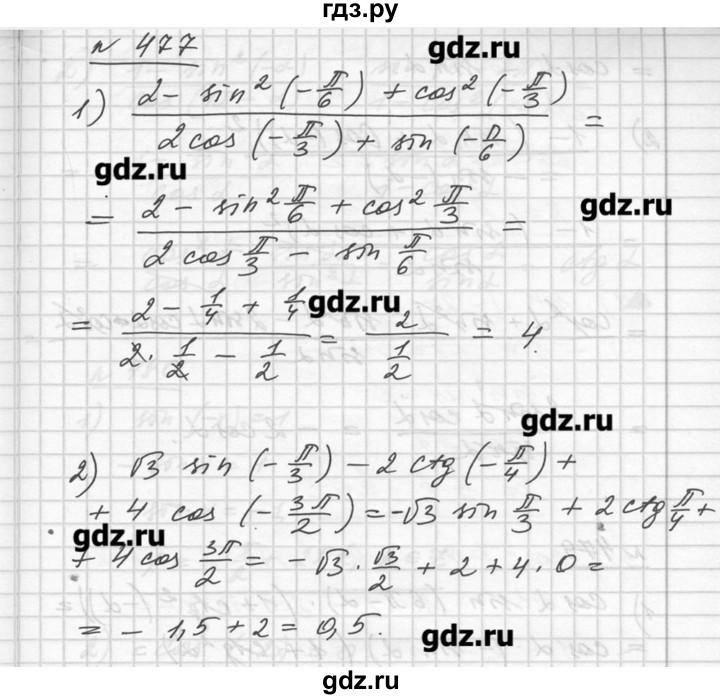 гдз.ру
n 477
gdz.ru
1) (2 - sin² (-π/6) + cos² (-π/3)) / (2 cos (-π/3) + sin (-π/6)) =
gdz.ru
gdz.ru
= (2 - sin² π/6 + cos² π/3) / (2 cos π/3 - sin π/6) =
gdz.ru
= (2 - 1/4 + 1/4) / (2 · 1/2 - 1/2) = 2 / (1/2) = 4.
gdz.ru
2) √3 sin (-π/3) - 2 ctg (-π/4) +
+ 4 cos (-3π/2) = -√3 sin π/3 + 2 ctg π/4 +
gdz.ru
+ 4 cos 3π/2 = -√3 · √3/2 + 2 + 4 · 0 =
= - 1,5 + 2 = 0,5.
gdz.ru
gdz.ru